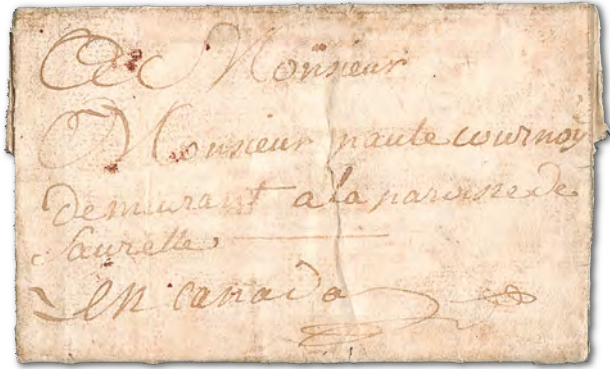 A Monsieur
Monsieur paule cournoÿ
demeurant a la paroisse de
Saurelle
en canada